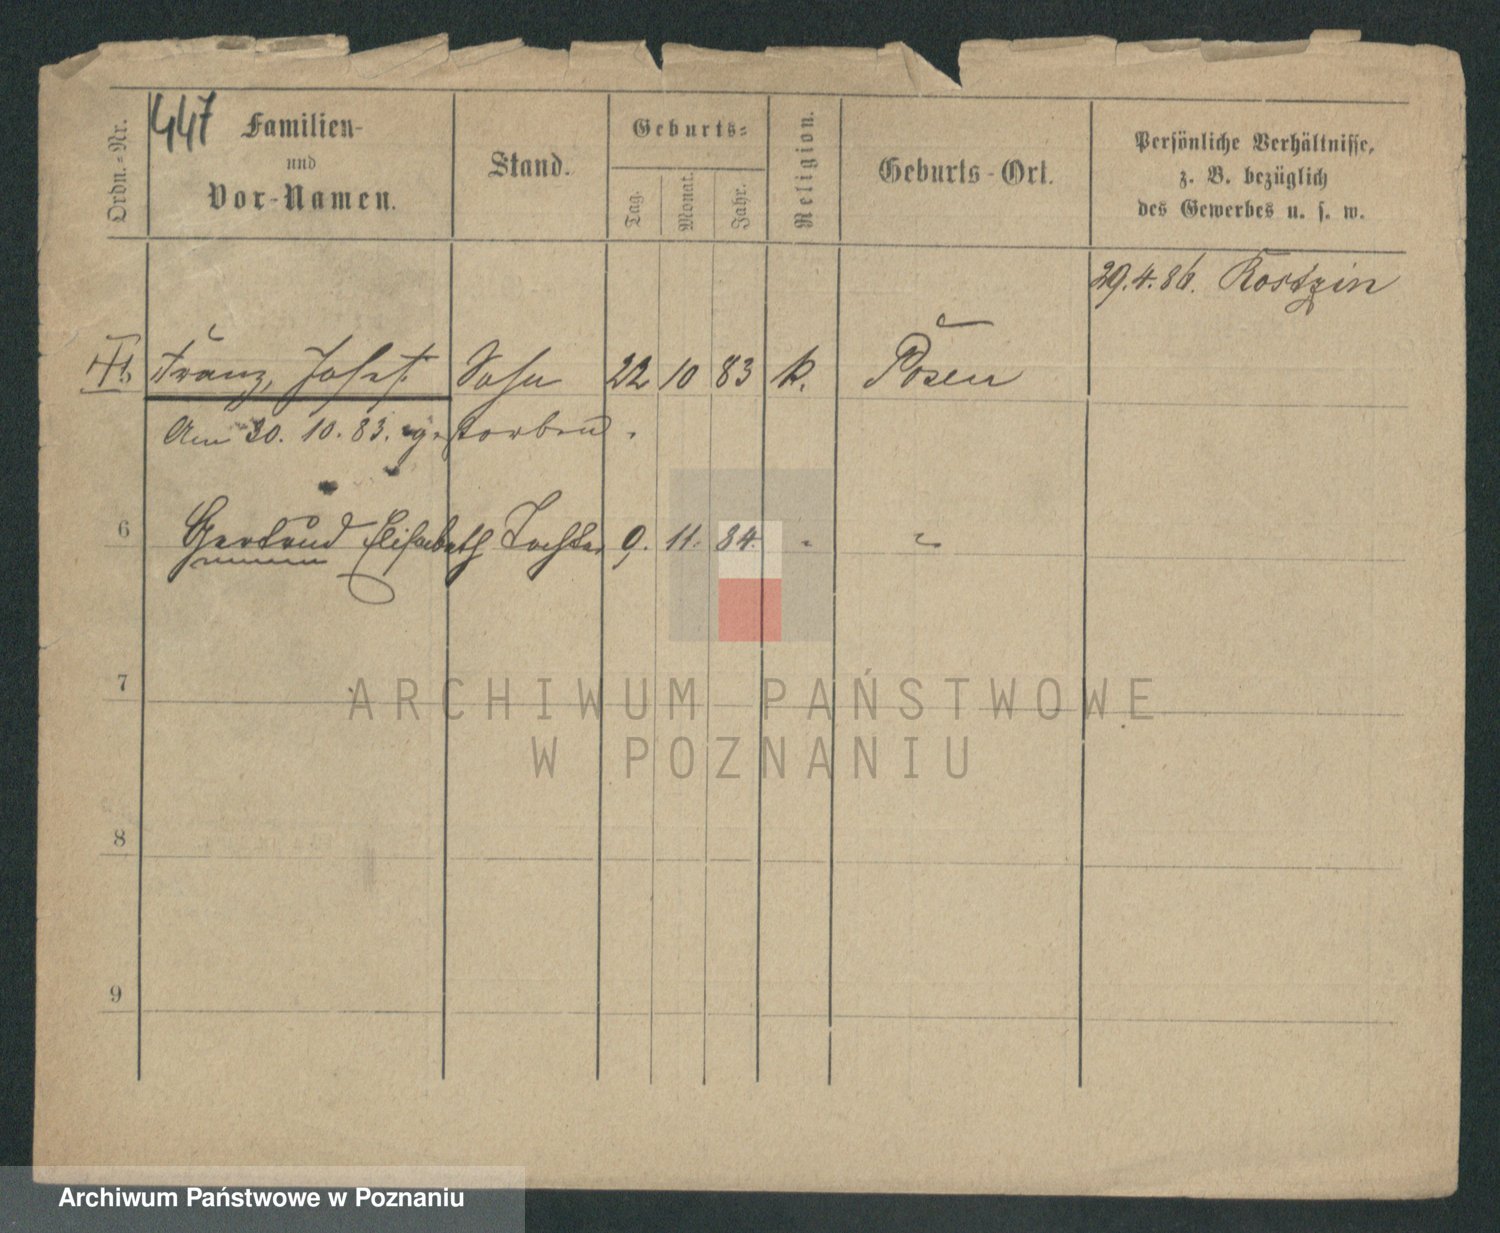 447
Ordn.-Nr. Familien- und Vor-Namen. Stand. Geburts- Tag. Monat. Jahr. Religion. Geburts-Ort. Persönliche Verhältnisse, z. B. bezüglich des Gewerbes u. s. w.
29.4.86. Kostzin
5 Franz, Josef Sohn 22 10 83 k. Posen
Am 30. 10. 83. gestorben.
6 Gertrud Elisabeth Tochter 9. 11. 84. " "
7
8
9
ARCHIWUM PAŃSTWOWE
W POZNANIU
Archiwum Państwowe w Poznaniu